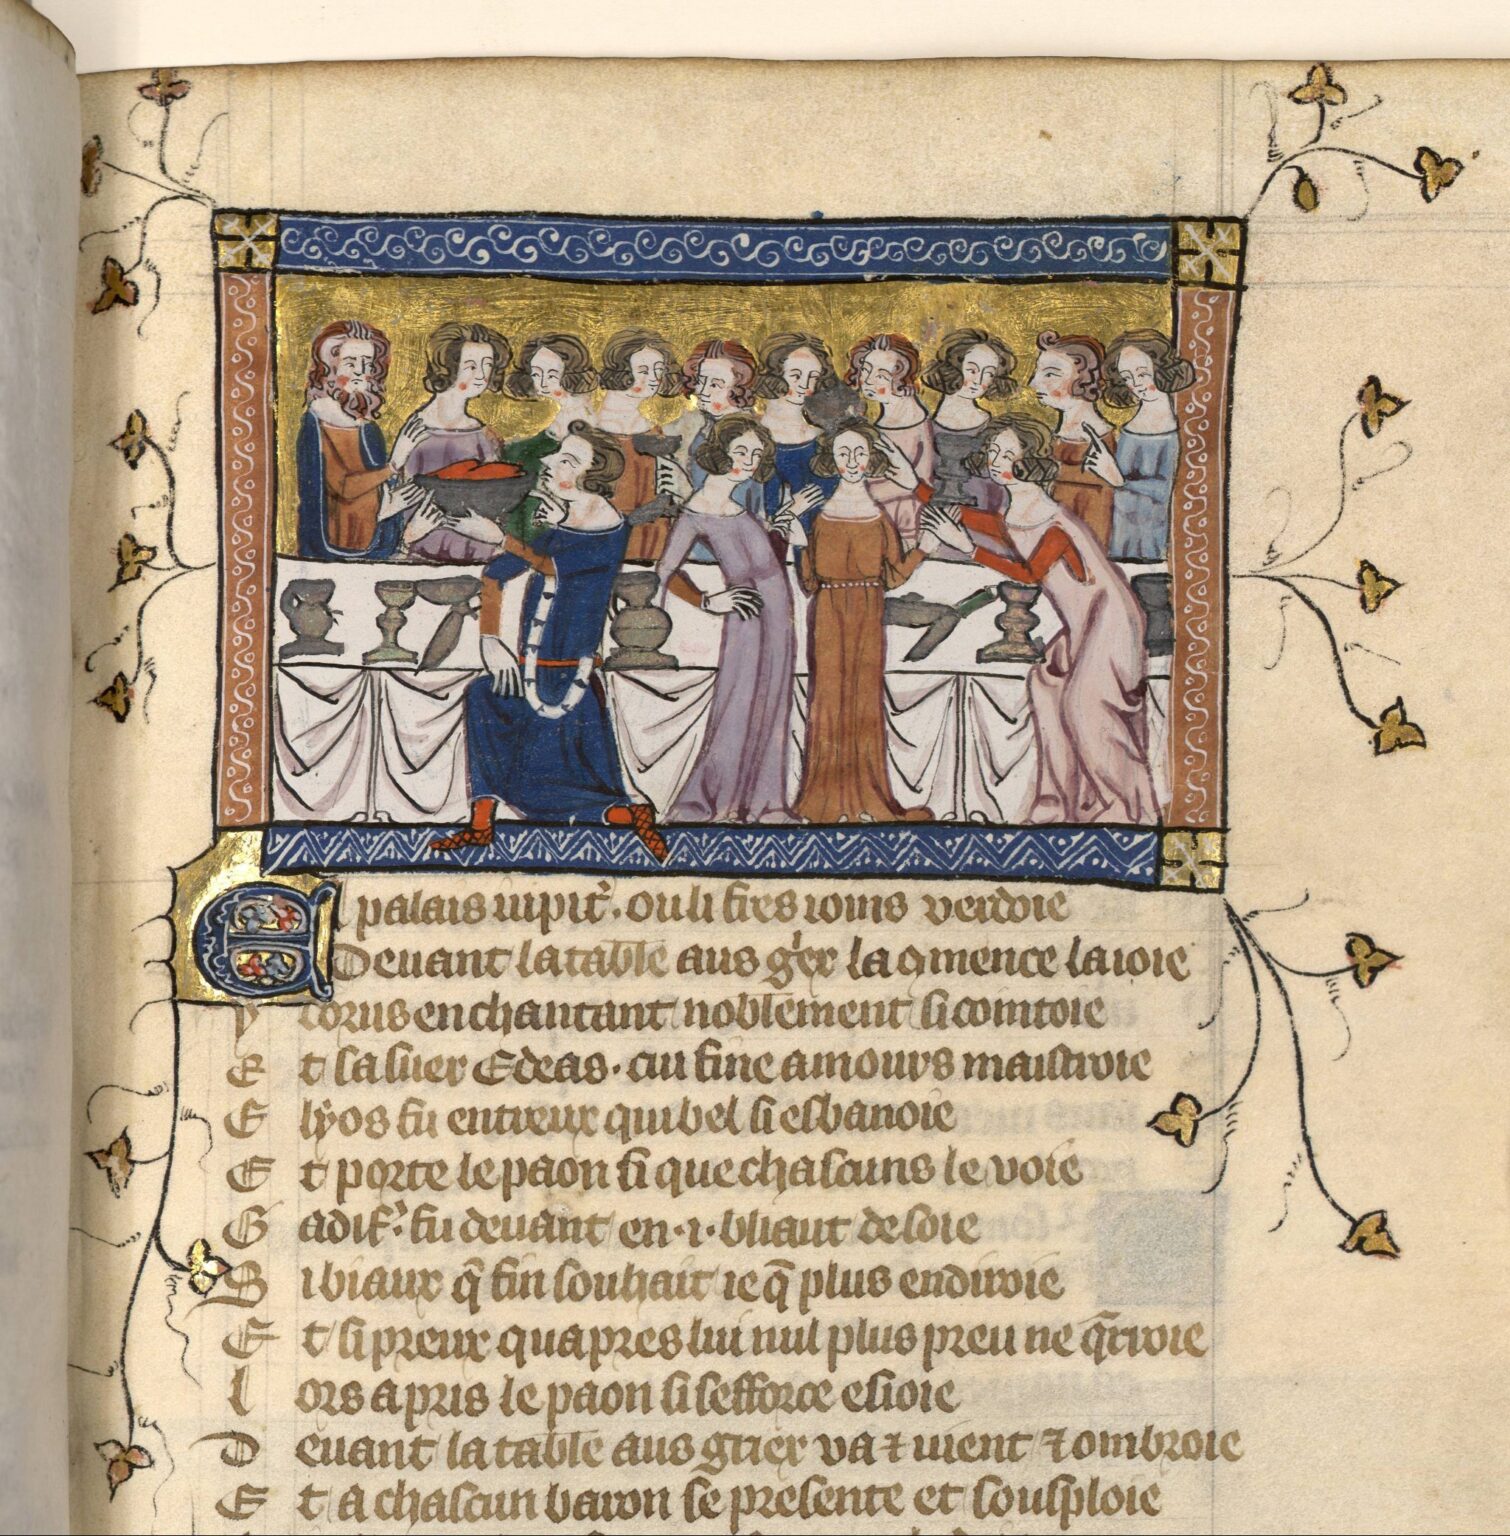 El palais iupit̾. ou li fres ionis verdoie
Deuant la table aus gͥer la ꝯmence la ioie
y dorus en chantant noblement si cointoie
Et sa suer Edeas. cui fine amours maistroie
Elyos fu entreux qui bel si esbanoie
Et porte le paon si que chascuns le voie
Gadif̾. fu deuant en .i. bliaut de soie
Si biaux q̄ fin souhait ie q̄ plus en diroie
Et si preux quapres lui nul plus preu ne q̄rroie
lors a pris le paon si sefforce
Deuant la table aus grier va ⁊ uient ⁊ ombroie
Et a chascun baron se presente et sousploie